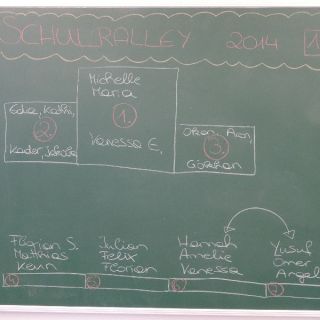 SCHULRALLEY 2014 1
Michelle
Maria
1.
Vanessa E.
Edia, Kadir,
2
Kader,
Okan, Aron,
3
Gökhan
Florian S.
Mathias
Kevin
4
Julian
Felix
Florian
5
Hannah
Amelie
Vanessa
6
Yusuf
Ömer
Angel
7